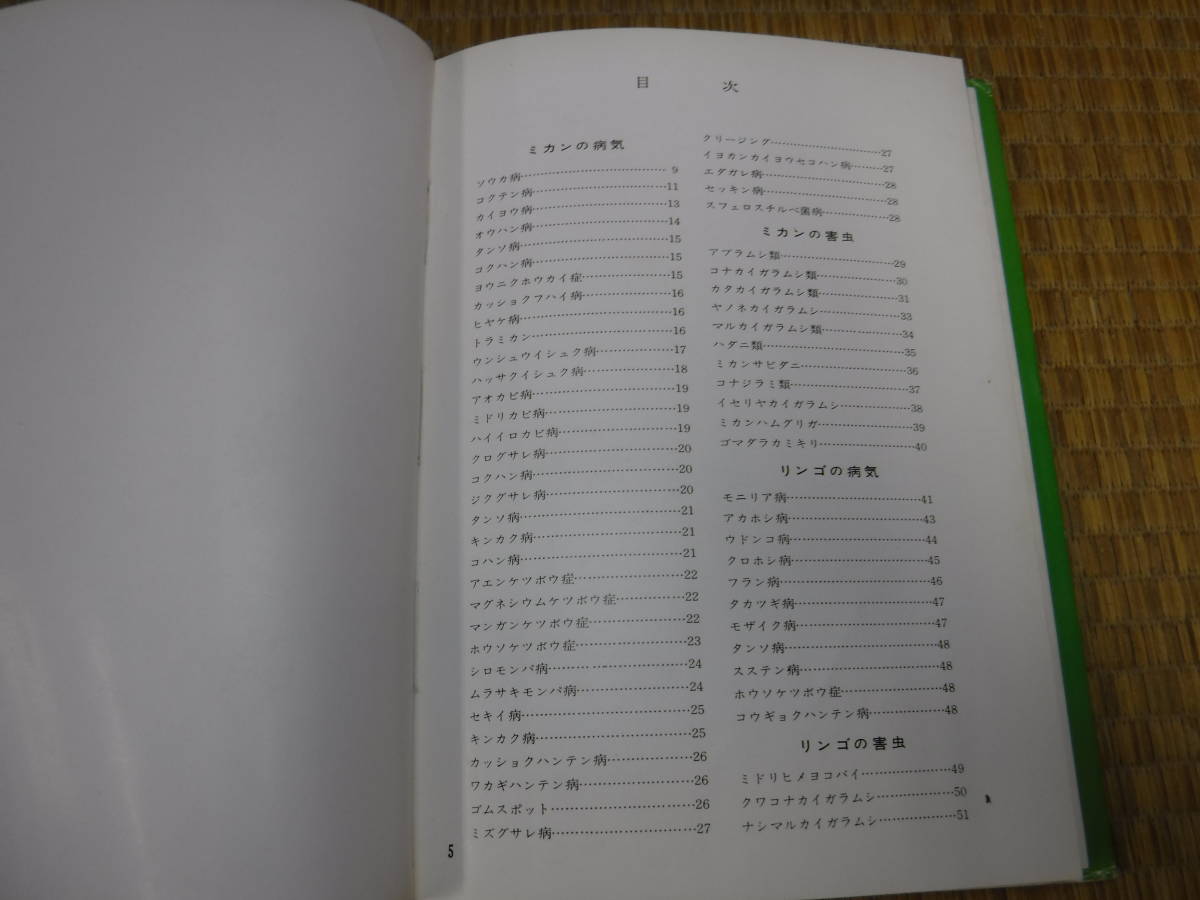 目次
ミカンの病気
ソウカ病……………………………… 9
コクテン病……………………………11
カイヨウ病……………………………13
オウハン病……………………………14
タンソ病………………………………15
コクハン病……………………………15
ヨウニクホウカイ症…………………15
カッショクフハイ病…………………16
ヒヤケ病………………………………16
トラミカン……………………………16
ウンシュウイシュク病………………17
ハッサクイシュク病…………………18
アオカビ病……………………………19
ミドリカビ病…………………………19
ハイイロカビ病………………………19
クログサレ病…………………………20
コクハン病……………………………20
ジクグサレ病…………………………20
タンソ病………………………………21
キンカク病……………………………21
コハン病………………………………21
アエンケツボウ症……………………22
マグネシウムケツボウ症……………22
マンガンケツボウ症…………………22
ホウソケツボウ症……………………23
シロモンパ病…………………………24
ムラサキモンパ病……………………24
セキイ病………………………………25
キンカク病……………………………25
カッショクハンテン病………………26
ワカギハンテン病……………………26
ゴムスポット…………………………26
ミズグサレ病…………………………27
クリージング…………………………27
イヨカンカイヨウセコハン病………27
エダガレ病……………………………28
セッキン病……………………………28
スフェロスチルベ菌病………………28
ミカンの害虫
アブラムシ類…………………………29
コナカイガラムシ類…………………30
カタカイガラムシ類…………………31
ヤノネカイガラムシ…………………33
マルカイガラムシ類…………………34
ハダニ類………………………………35
ミカンサビダニ………………………36
コナジラミ類…………………………37
イセリヤカイガラムシ………………38
ミカンハムグリガ……………………39
ゴマダラカミキリ……………………40
リンゴの病気
モニリア病……………………………41
アカホシ病……………………………43
ウドンコ病……………………………44
クロホシ病……………………………45
フラン病………………………………46
タカツギ病……………………………47
モザイク病……………………………47
タンソ病………………………………48
スステン病……………………………48
ホウソケツボウ症……………………48
コウギョクハンテン病………………48
リンゴの害虫
ミドリヒメヨコバイ…………………49
クワコナカイガラムシ………………50
ナシマルカイガラムシ………………51
5